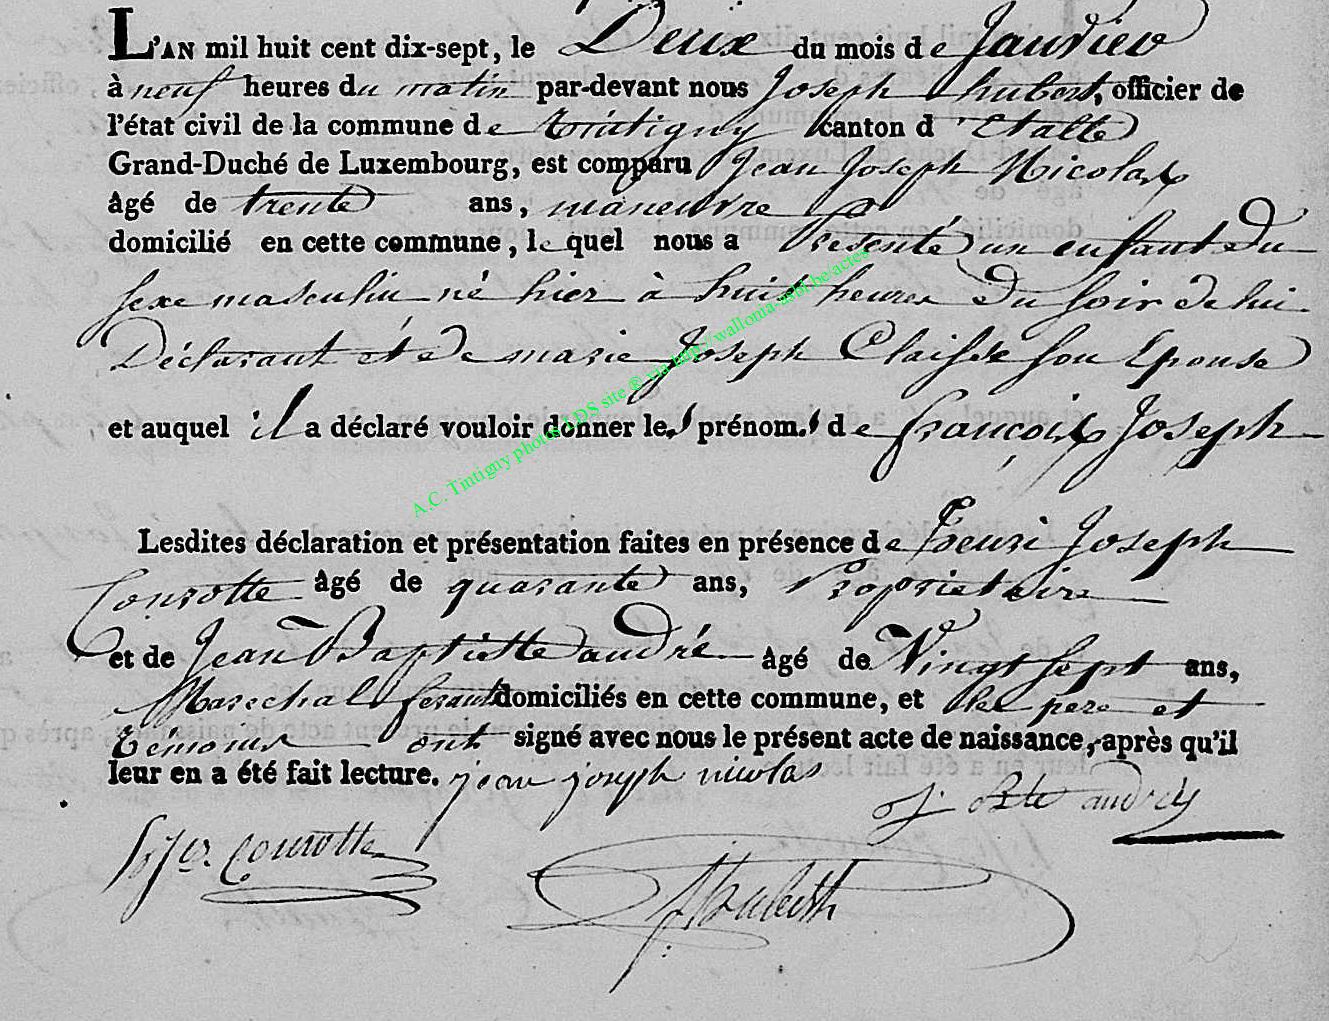 L'AN mil huit cent dix-sept, le Deux du mois de Janvier
à neuf heures du matin par-devant nous Joseph hubert, officier de
l'état civil de la commune de tintigny canton d'Etalle
Grand-Duché de Luxembourg, est comparu Jean Joseph Nicolas
âgé de trente ans, maneuvre
domicilié en cette commune, lequel nous a Présenté un enfant du
sexe masculin né hier à huit heures du soir de lui
Déclarant et de marie Joseph Claisse son Epouse
et auquel il a déclaré vouloir donner les prénom.s de françois Joseph
A.C. Tintigny photos LDS site ® via http://wallonia-asbl.be/actes
Lesdites déclaration et présentation faites en présence de henri Joseph
Courotte âgé de quarante ans, Proprietaire
et de Jean Baptiste andré âgé de Vingt sept ans,
Marechal ferant domiciliés en cette commune, et les pere et
Témoins ont signé avec nous le présent acte de naissance, après qu'il
leur en a été fait lecture. jean joseph nicolas
j Bte andré
Courotte